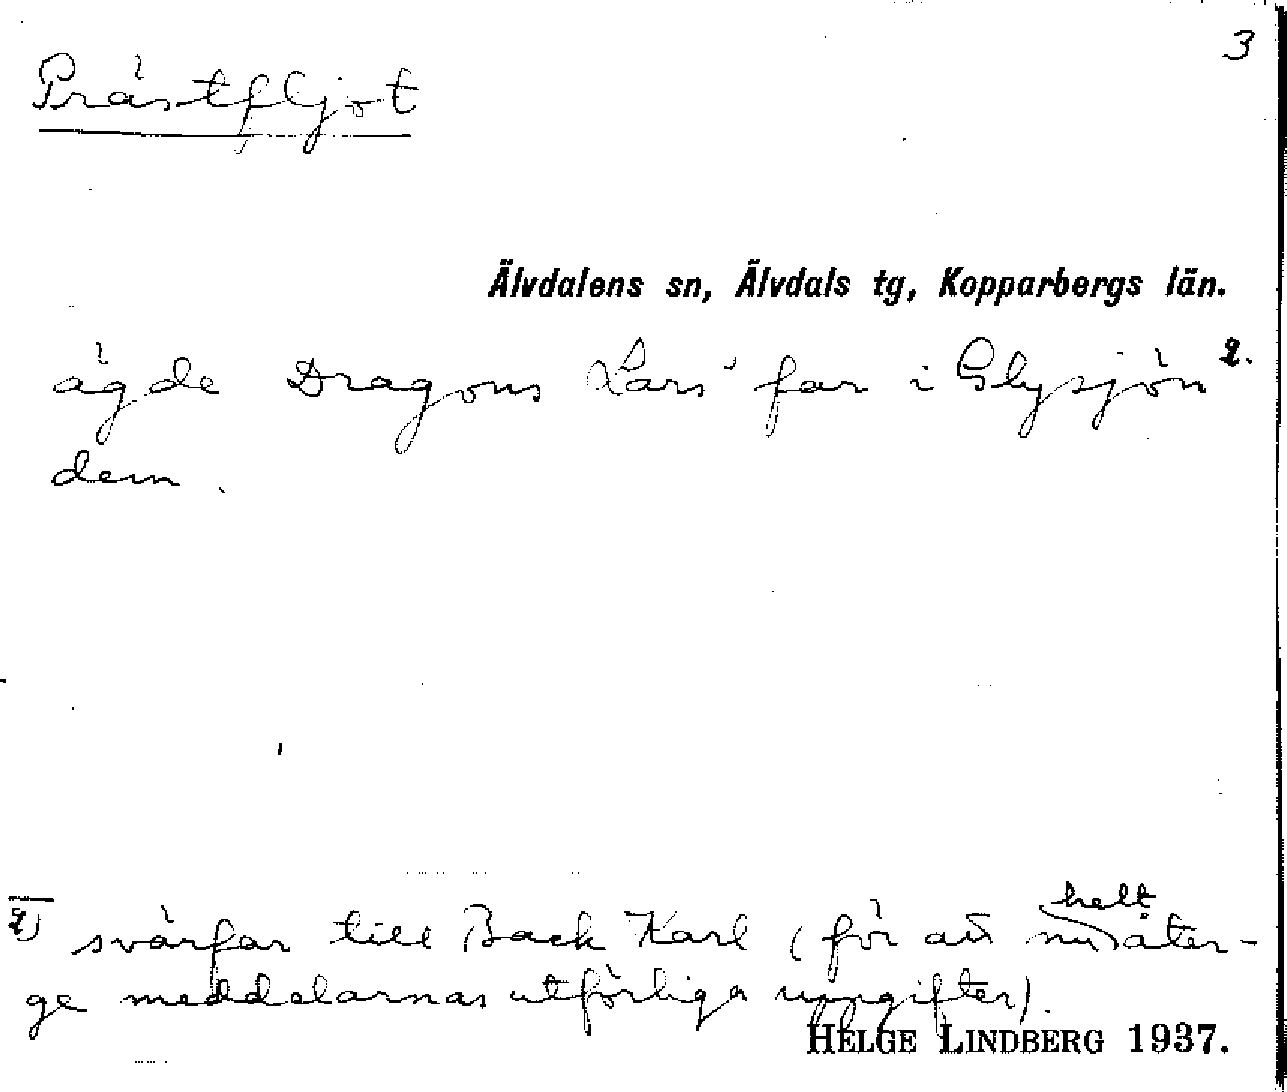 3
Prästfljot
Älvdalens sn, Älvdals tg, Kopparbergs län.
ägde Dragons Lars' far i Glysjön 2.
dem.
2) svärfar till Back Karl (för att nu helt åter-
ge meddelarnas utförliga uppgifter).
HELGE LINDBERG 1937.